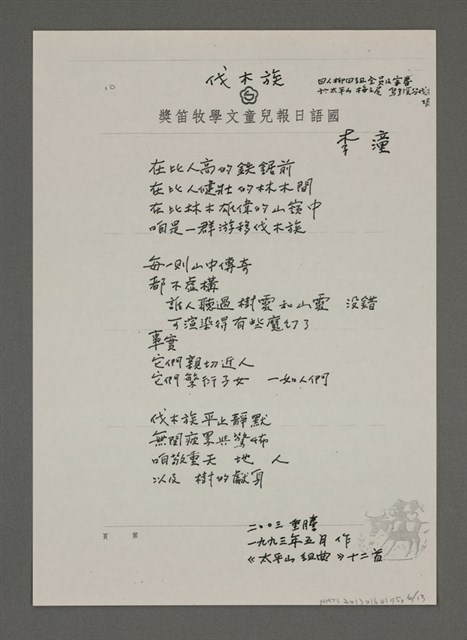 伐木族
國語日報兒童文學牧笛獎
李潼
在比人高的鋏鋸前
在比人健壯的林木間
在比林木雄偉的山嶺中
咱是一群游移伐木族
每一則山中傳奇
都不虛構
誰人聽過樹靈和山靈 沒錯
可渲染得有些魔幻了
事實
它們親切近人
它們繁衍子女 一如人們
伐木族平止靜默
無關疲累與驚怖
咱敬重天 地 人
以及 樹的獻身
二〇〇三 重謄
一九九三年五月作
《太平山組曲》十二首
頁 第